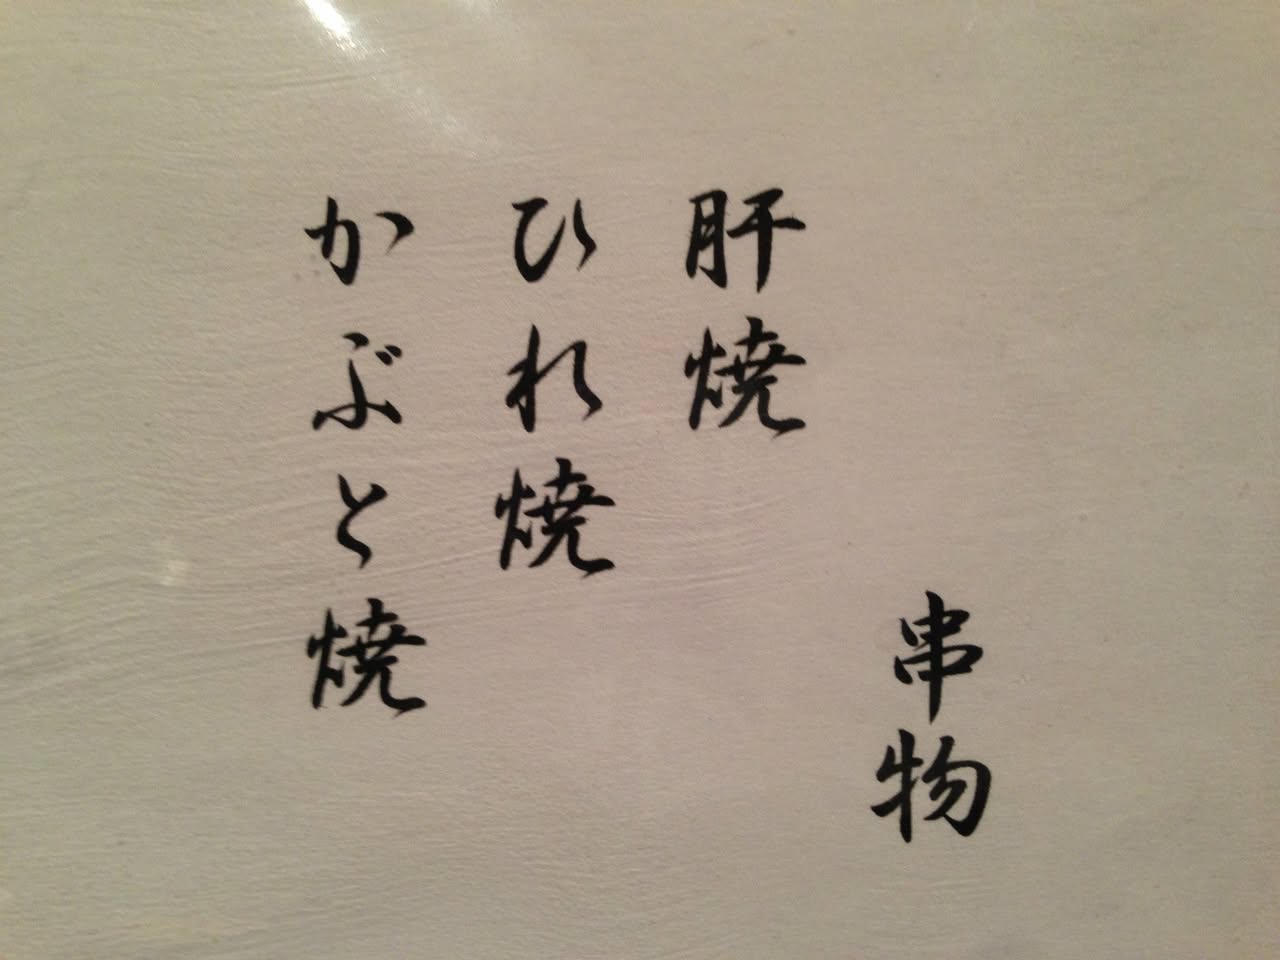 串物
肝焼
ひれ焼
かぶと焼